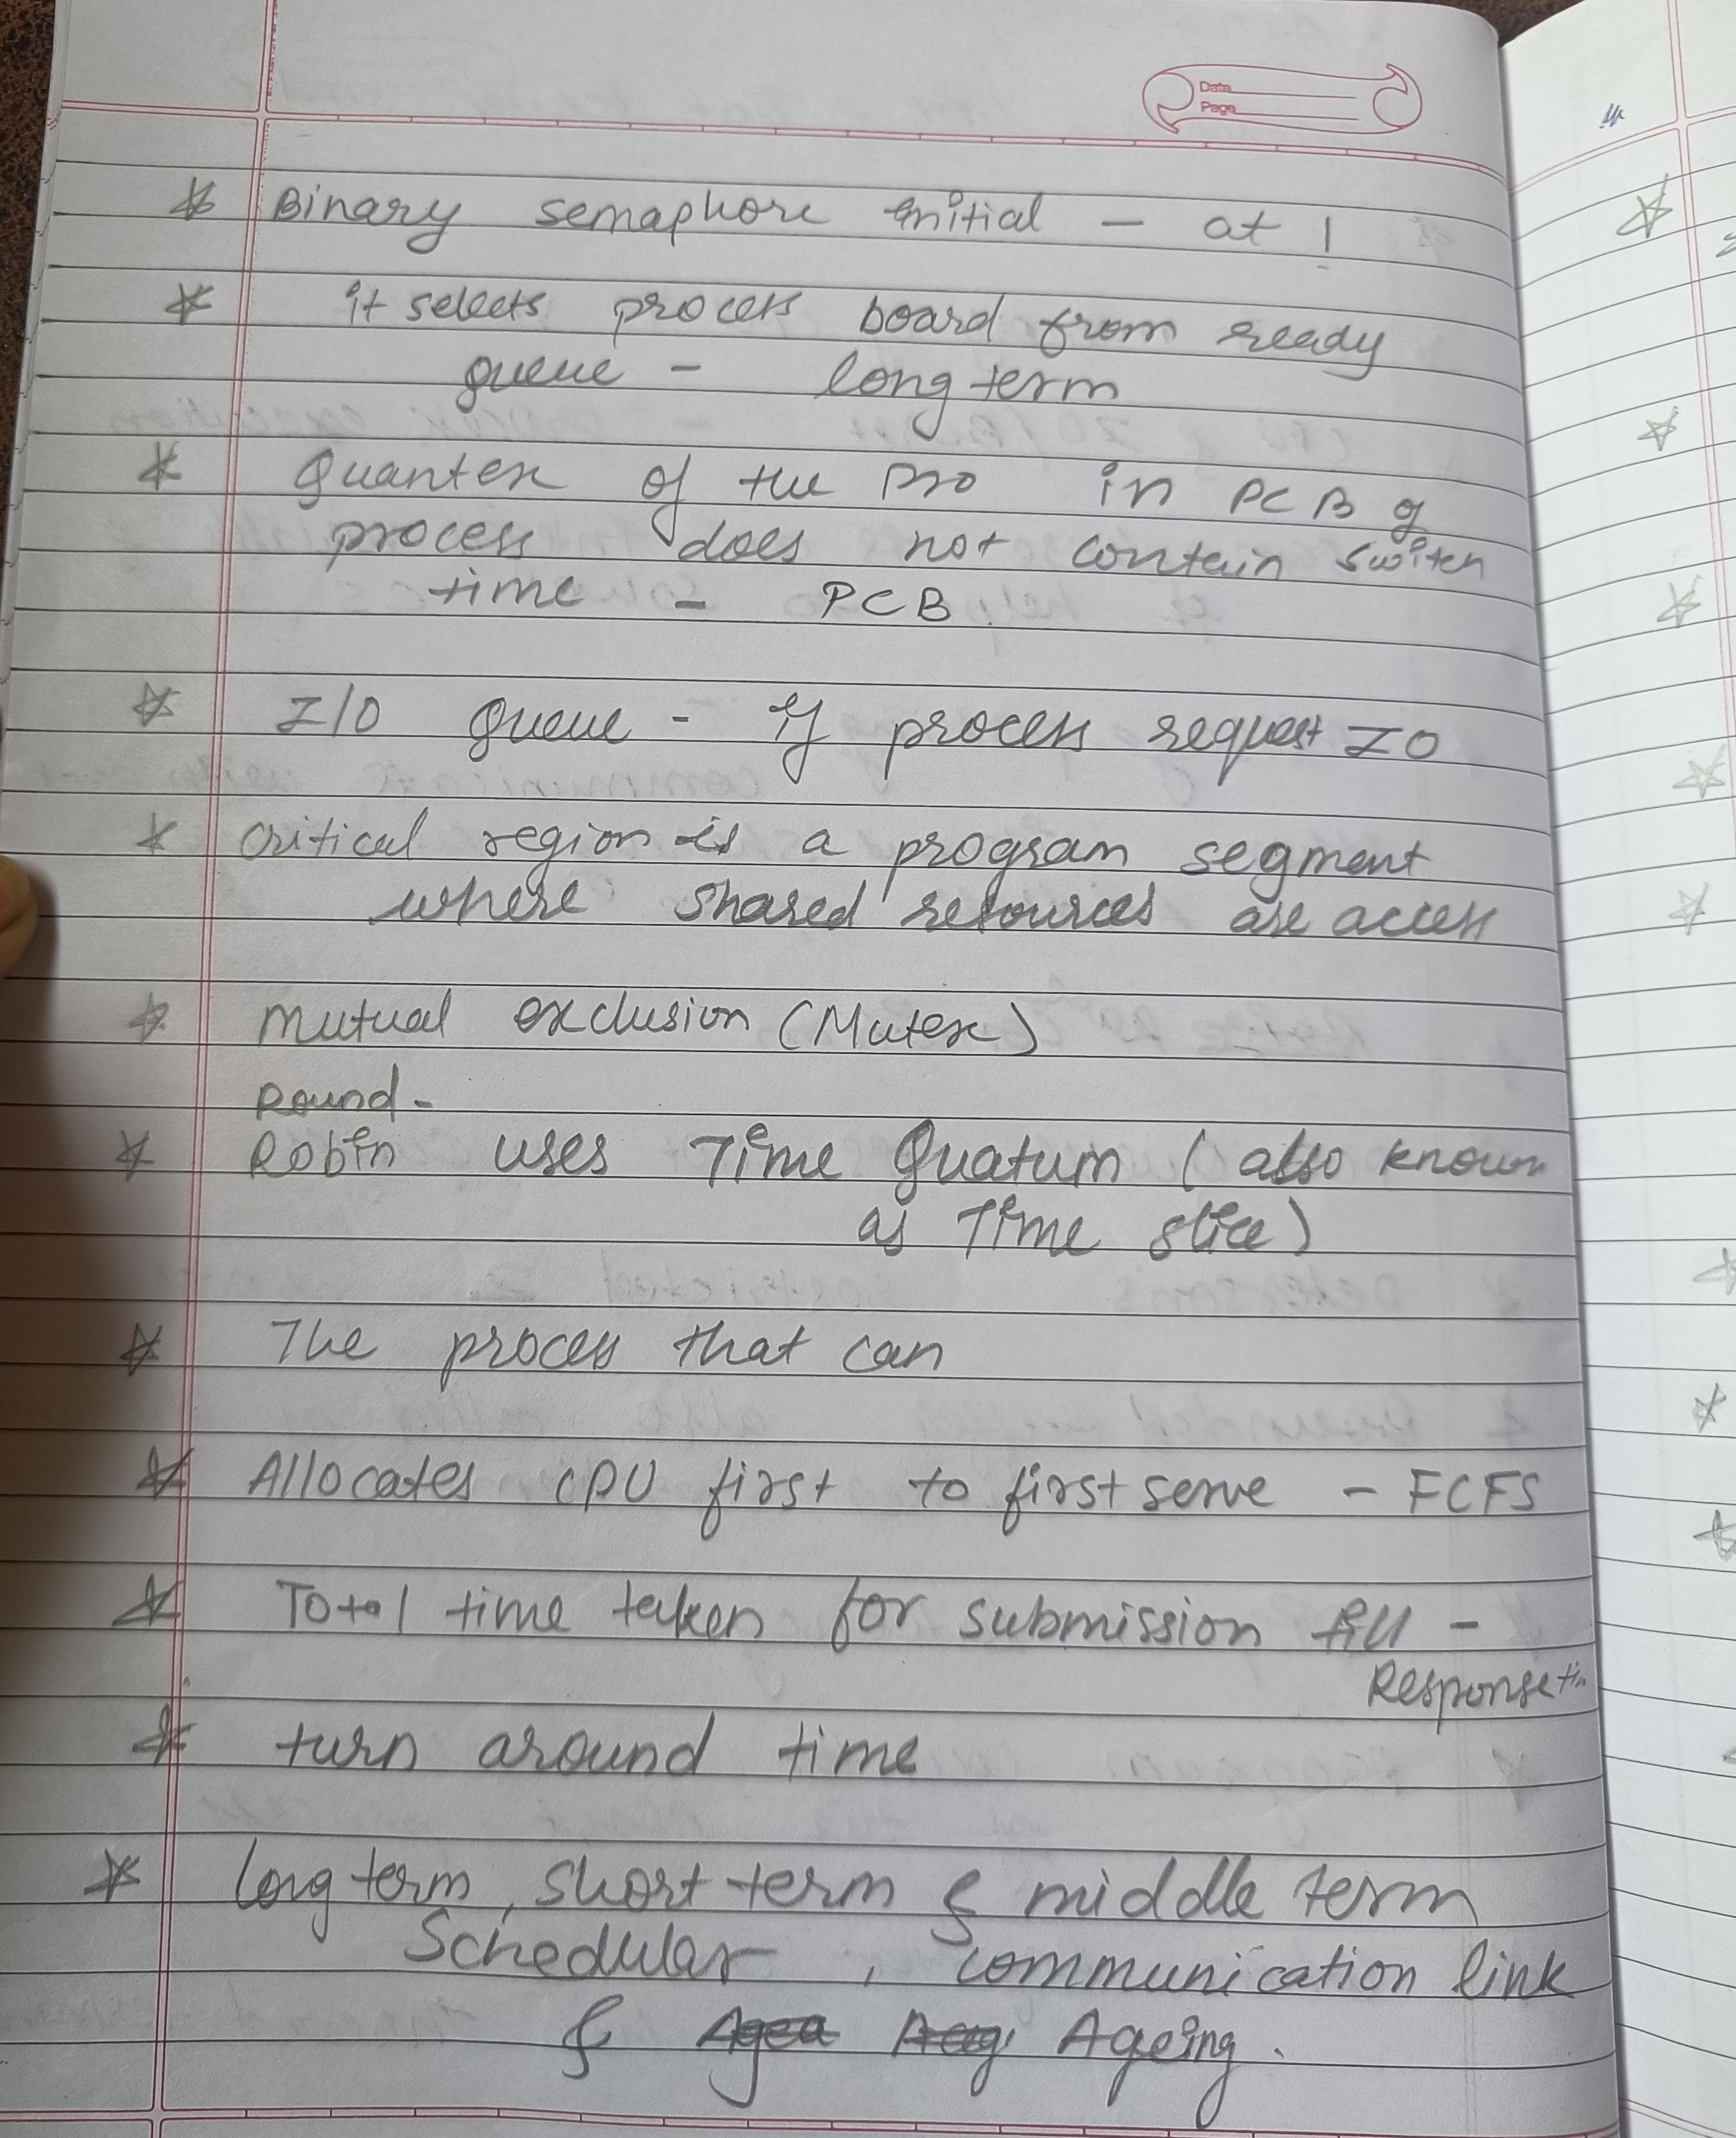 Date
Page
* Binary semaphore initial - at 1
* it selects process board from ready
queue - long term
* Quanten of the pro in PCB of
process does not contain switch
time - PCB
* I/O queue - if process request IO
* critical region is a program segment
where shared resources are access
* mutual exclusion (Mutex)
Round-
* Robin uses Time Quatum ( also known
as Time slice)
* The process that can
* Allocates CPU first to first serve - FCFS
* Total time taken for submission till -
Response
* turn around time
* long term, short term & middle term
Schedular, communication link
& Ageing.